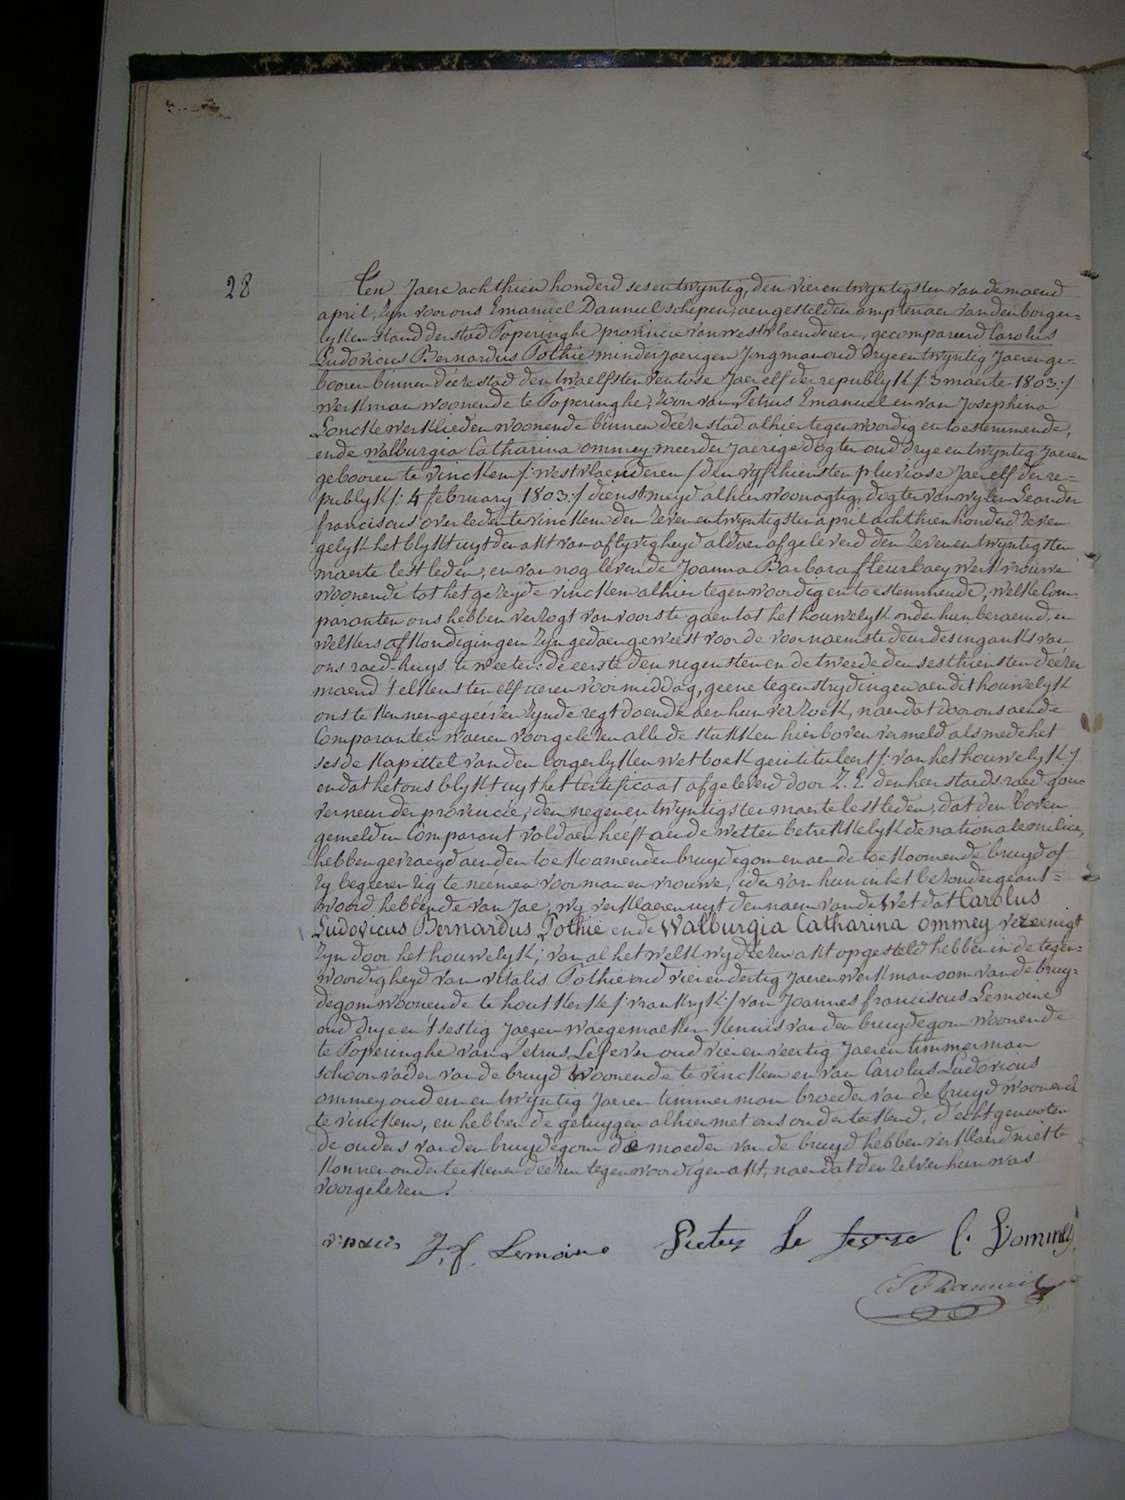 28
Ten Jaere achthien honderd sesentwyntig, den vierentwyntigsten van de maend
april, zyn voor ons Emanuel Danneel schepen, aengestelden amptenaer van den borger-
lyken stand der stad Poperinghe provincie van westvlaenderen, gecompareerd Carolus
Ludovicus Bernardus Pothie minderjaerigen Jongman oud drye en twyntig Jaeren ge-
booren binnen deéze stad den twaelfsten ventose Jaer elf der republyk /: 3 maerte 1803 :/
werkman woonende te Poperinghe, zoon van Petrus Emanuel en van Josephina
Loncke werklieden woonende binnen deéze stad alhier tegenwoordig en toestemmende,
ende Walburgia Catharina ommey meerder Jaerige dogter oud drye en twyntig Jaeren
gebooren te vinckem /: westvlaenderen / den vyfthiensten pluviose Jaer elf der re-
publyk /: 4 february 1803 :/ dienstmeyd alhier woonagtig, dogter van wylen Leander
franciscus overleden te vinckem den zevenentwyntigsten april achthien honderd zeven
gelyk het blykt uyt den akt van aflyvigheyd aldaer afgeleverd den zevenentwyntigsten
maerte lestleden, en van nog levende Joanna Barbara fleurbaey werkvrouwe
woonende tot het gezeyde vinckem alhier tegenwoordig en toestemmende, welke Com-
paranten ons hebben verzogt van voorts te gaen tot het houwelyk onder hun beraemd, en
welkers afkondigingen zyn gedaen geweest voor de voornaemste deur des ingangks van
ons raed-huys, te weeten: de eerste den negensten en de tweede den sesthiensten deézer
maend t'elkensten elf ueren voormiddag, geene tegenstrydingen aen dit houwelyk
ons te kennen gegeéven zynde regt doende aen hun verzoek, naer dat door ons aen de
Comparanten waeren voorgelezen alle de stukken hier boven vermeld als mede het
sesde kapittel van den borgerlyken wetboek geintituleert /: van het houwelyk :/
en dat het ons blykt uyt het certificaat afgeleverd door Z. E. den heer staeds-raed gou-
verneur der provincie, den negenentwyntigsten maerte lestleden, dat den boven
gemelden Comparant voldaen heeft aen de wetten betrekkelyk de nationale milicie,
hebben gevraegd aen den toekoomenden bruydegom en aen de toekoomende bruyd of
zy begeeren zig te neémen voor man en vrouwe, ider van hun in het bezonder geant=
woord hebbende van Jae; wy verklaeren uyt den naem van de Wet dat Carolus
Ludovicus Bernardus Pothie ende Walburgia Catharina ommey vereenigt
zyn door het houwelyk; van al het welk wy deézen akt opgesteld hebben in de tegen-
woordigheyd van vitalis Pothie oud vierendertig Jaeren werkman oom van de bruy-
degom woonende te houtkerke /: vrankryk :/ van Joannes franciscus Lemoine
oud drye en t'sestig Jaeren waegemaeker kennis van den bruydegom woonende
te Poperinghe van Petrus Lefever oud vier en veertig Jaeren timmerman
schoonvader van de bruyd woonende te vinckem en van Carolus Ludovicus
ommey oud een en twyntig Jaeren timmerman broeder van de bruyd woonende
te vinckem, en hebben de getuygen alhier met ons onderteekend, d'echtgenooten
de ouders van den bruydegom de moeder van de bruyd hebben verklaerd niet te
konnen onderteekenen deézen tegenwoordigen akt, naer dat den zelven hun was
voorgelezen.
J. f. Lemoine Pieter Le fevre C. L'ommey